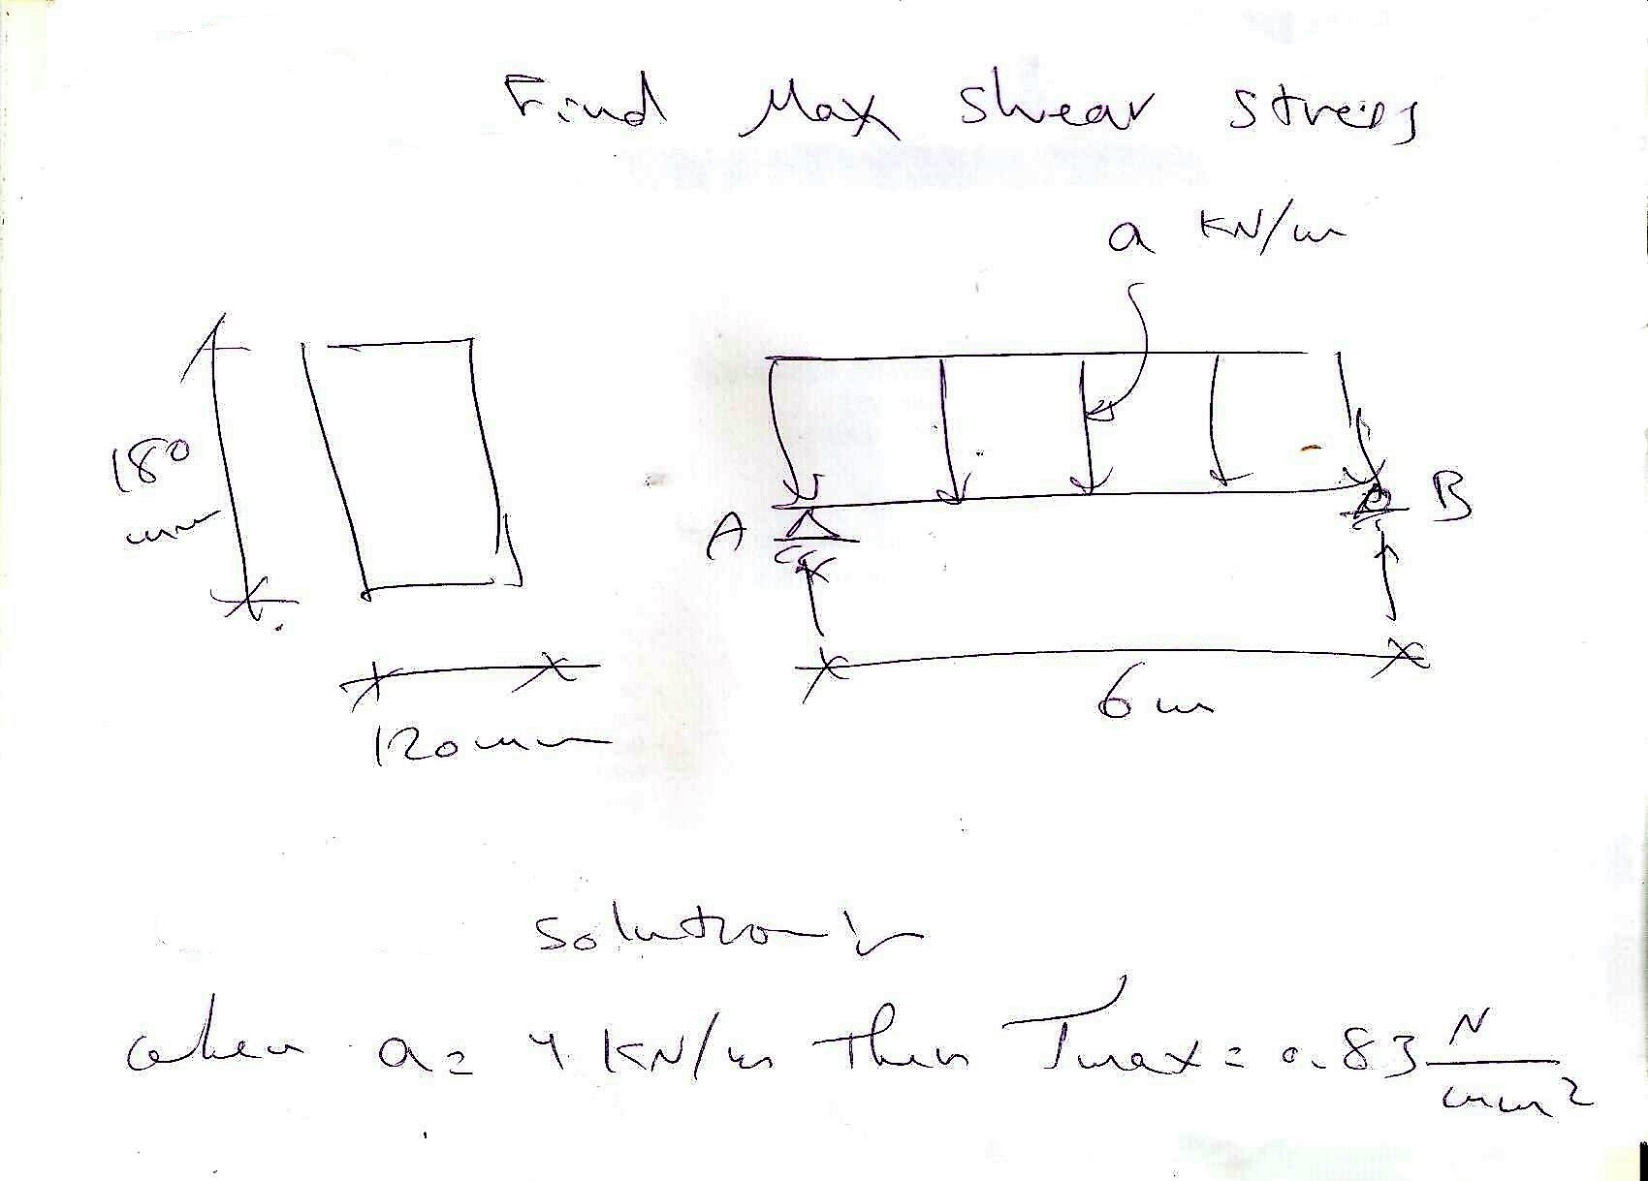 Find Max shear stress
a KN/m
180
mm
A
B
6m
120mm
Solution:
when a= 4 KN/m then Tmax= 0.83 N/mm²